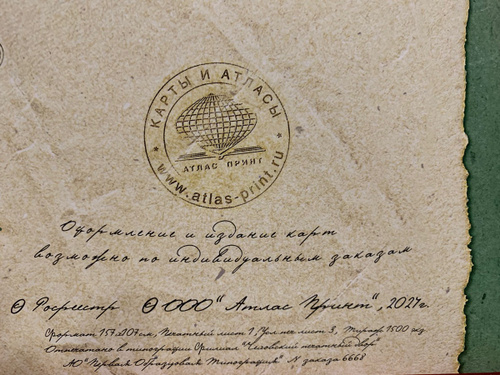 КАРТЫ И АТЛАСЫ
АТЛАС ПРИНТ
www.atlas-print.ru
Оформление и издание карт
возможно по индивидуальным заказам
© Росреестр © ООО "Атлас Принт", 2024г.
Формат 157х107см, Печатный лист 1, Усл. печ. лист 3, Тираж 1500 экз
Отпечатано в типографии Филиал "Чеховский печатный двор"
АО "Первая Образцовая Типография" N заказа 6668